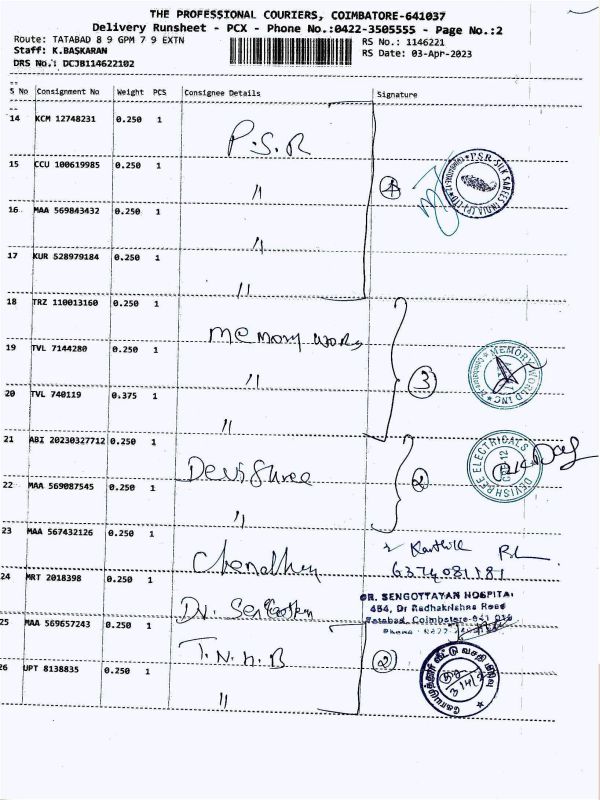 THE PROFESSIONAL COURIERS, COIMBATORE-641037
Delivery Runsheet - PCX - Phone No.:0422-3505555 - Page No.:2
Route: TATABAD 8 9 GPM 7 9 EXTN
RS No.: 1146221
Staff: K.BASKARAN
RS Date: 03-Apr-2023
DRS No.: DCJB114622102
S No Consignment No Weight PCS Consignee Details Signature
14 KCM 12748231 0.250 1 P.S.R
15 CCU 100619985 0.250 1 "
4
P.S.R. SILK SAREES INDIA (P) LTD
16 MAA 569843432 0.250 1 "
17 KUR 528979184 0.250 1 "
18 TRZ 110013160 0.250 1 Memory World
19 TVL 7144280 0.250 1 "
3
MEMORY WORLD INC
20 TVL 740119 0.375 1 "
21 ABI 20230327712 0.250 1 Devi Shree
2
DEVISHREE ELECTRICALS
22 MAA 569087545 0.250 1 "
23 MAA 567432126 0.250 1
Karthik
6374081181
24 MRT 2018398 0.250 1 Dr.
DR. SENGOTTAYAN HOSPITAL
454, Dr Radhakrishna Road
Tatabad, Coimbatore-641 012
25 MAA 569657243 0.250 1 T.N.H.B
2
26 UPT 8138835 0.250 1 "